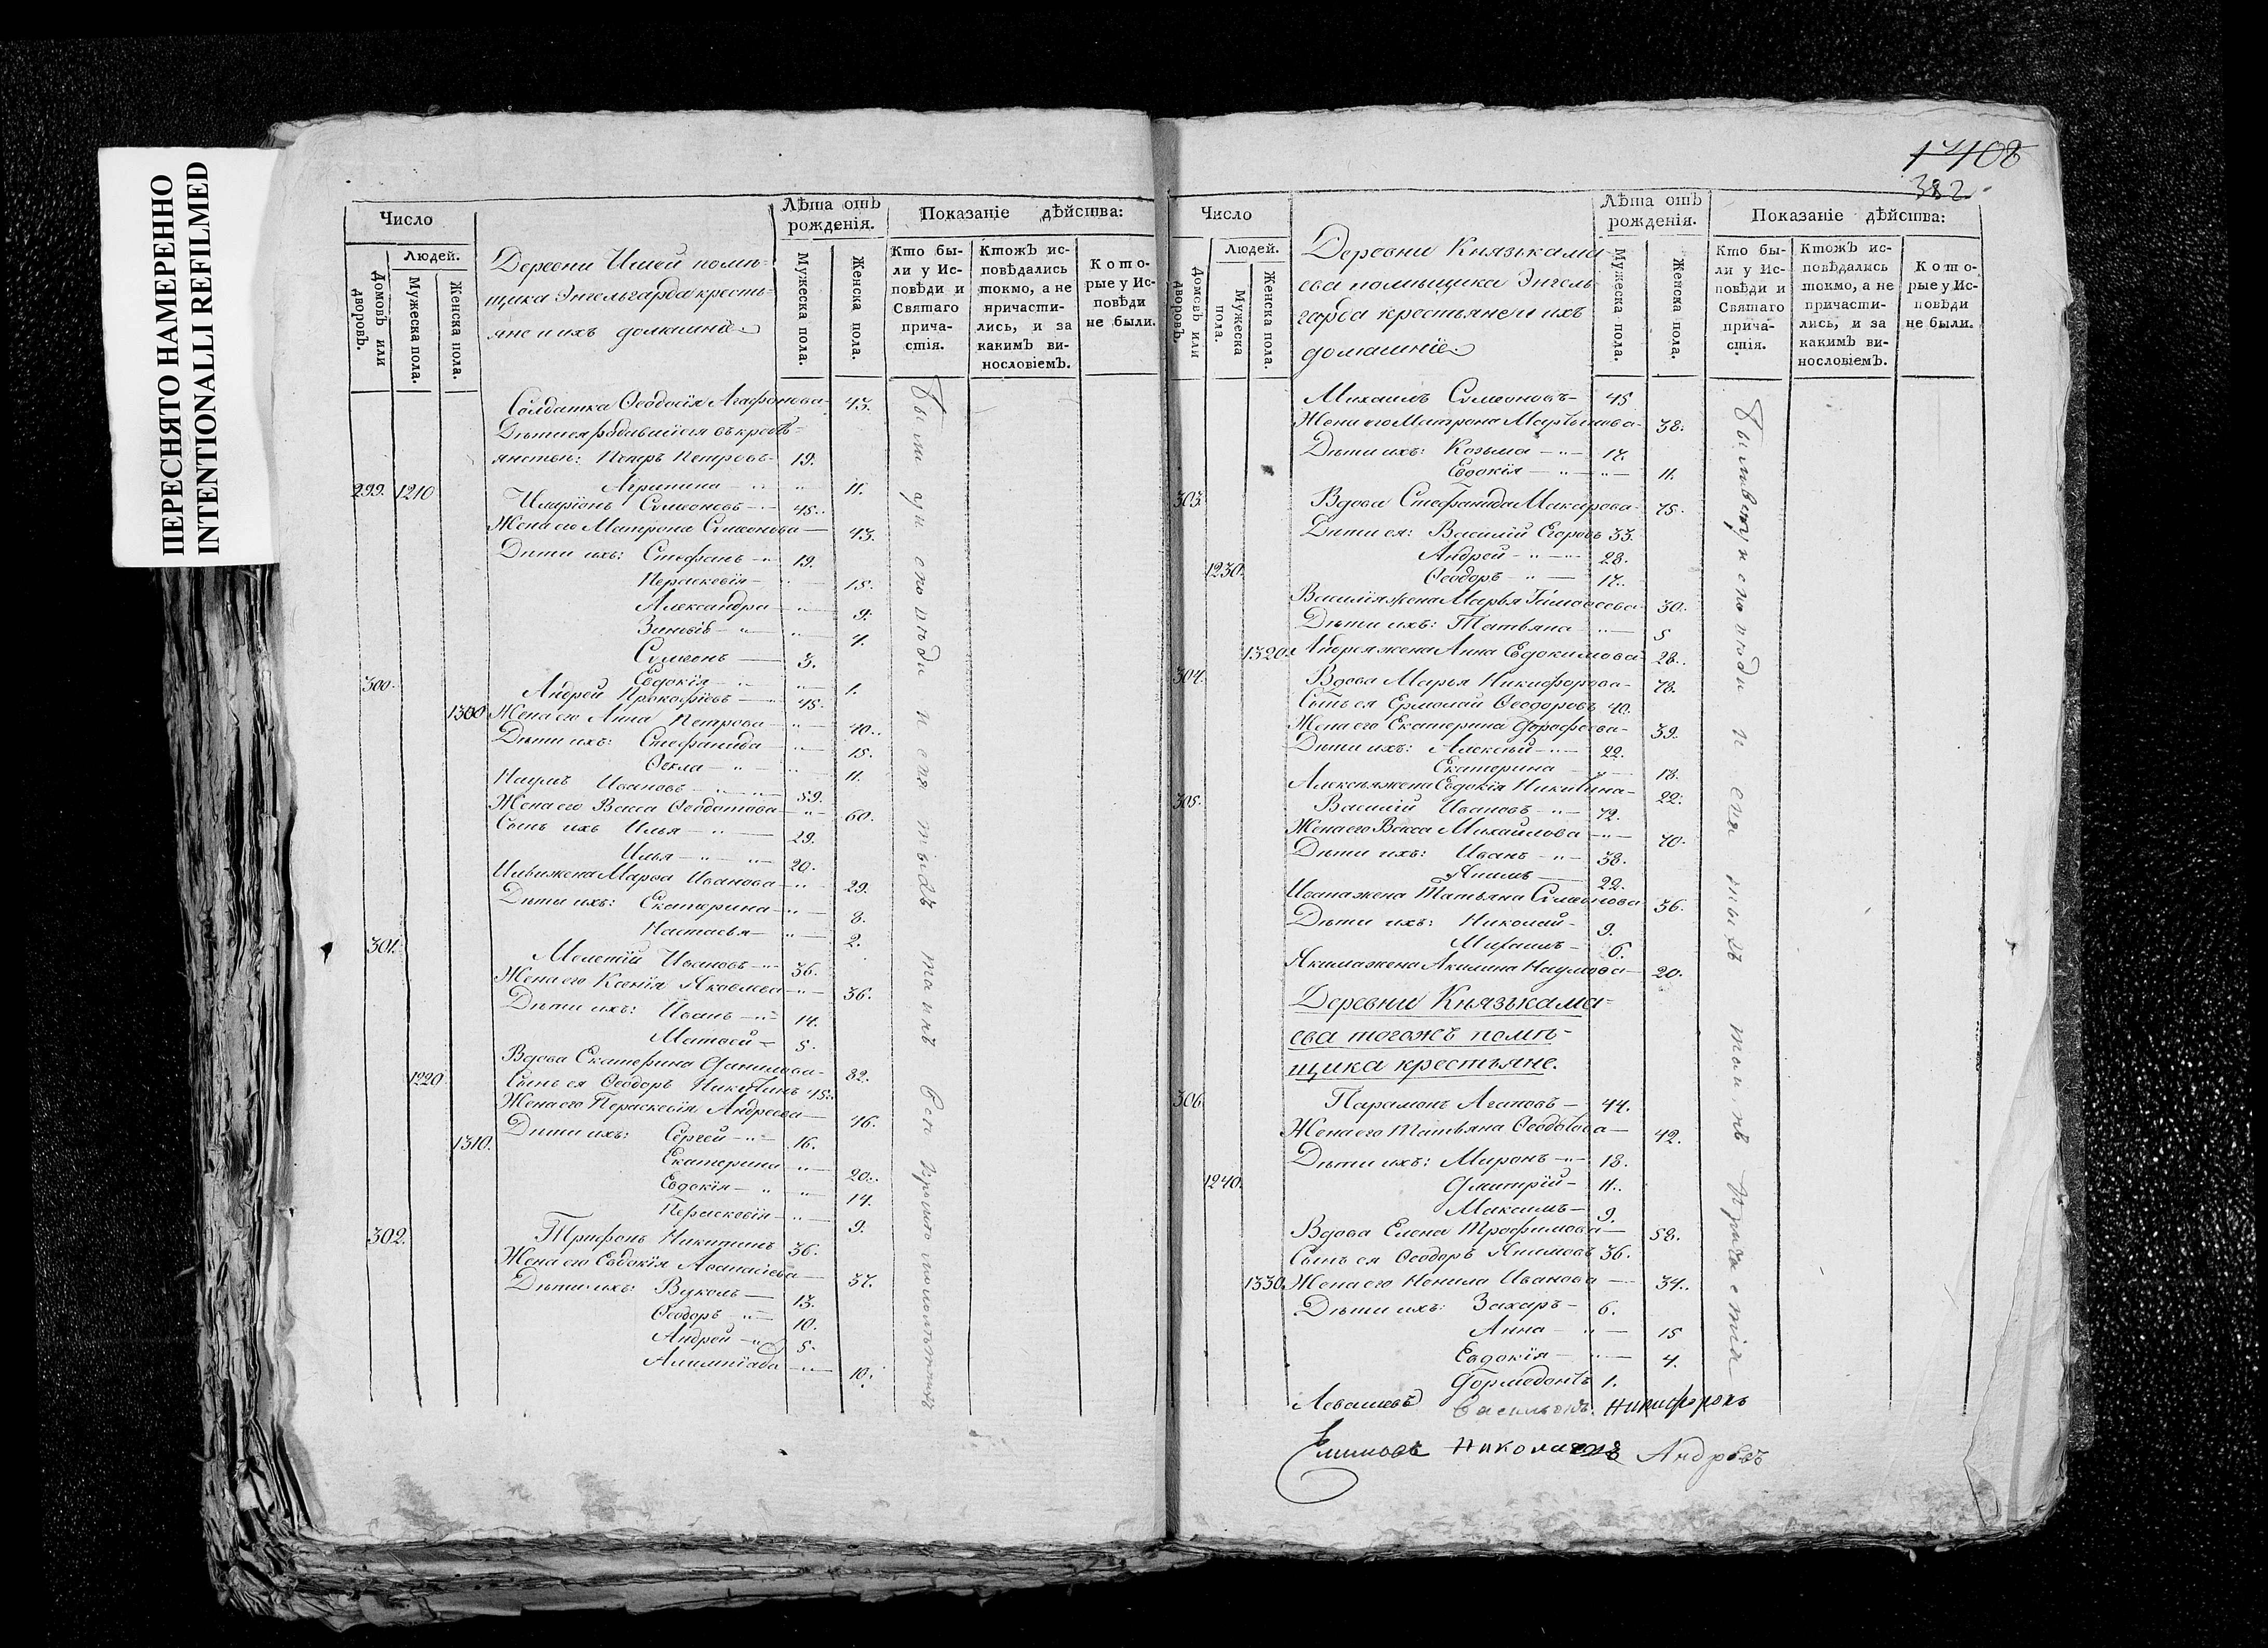 ПЕРЕСНЯТО НАМЕРЕННО
INTENTIONALLI REFILMED
Число
Людей.
Домовъ или дворовъ.
Мужеска пола.
Женска пола.
Деревни Ишей помѣ-
щика Энгельгарда кресть-
яне и ихъ домашніе
Лѣта отъ рожденія.
Мужеска пола.
Женска пола.
Показаніе дѣйства:
Кто бы-
ли у Ис-
повѣди и
Святаго
прича-
стія.
Ктожъ ис-
повѣдались
токмо, а не
причасти-
лись, и за
какимъ ви-
нословіемъ.
Кото-
рые у Ис-
повѣди
не были.
Солдатка Ѳеодосія Агафонова 43.
Дѣти ея
янствѣ: Петръ Петровъ 19.
Агрипина 11.
299. 1210 Иларіонъ Симеоновъ 45.
Жена его Матрона Симеонова 43.
Дѣти ихъ: Стефанъ 19.
Пераскевія 15.
Александра 9.
Симеонъ 3.
Евдокія 1.
300. Андрей Прокофіевъ 45.
1300 Жена его Анна Петрова 40.
Дѣти ихъ: Стефанида 15.
Ѳекла 11.
Наумъ Ивановъ 59.
Жена его Васса Ѳеодотова 60.
Сынъ ихъ Илья 29.
Илья 20.
Ильи жена Марѳа Иванова 29.
Дѣти ихъ: Екатерина 8.
Настасья 2.
301. Мелетій Ивановъ 36.
Жена его Ксенія Яковлева 36.
Дѣти ихъ: Иванъ 14.
Матвей 5.
Вдова Екатерина Данилова 82.
1220 Сынъ ея Ѳеодоръ Никитинъ 45.
Жена его Пераскевія Андреева 46.
1310. Дѣти ихъ: Сергей 16.
Екатерина 20.
Евдокія 14.
Пераскевія 9.
302. Трифонъ Никитинъ 36.
Жена его Евдокія Аѳанасіева 37.
Дѣти ихъ: Вуколъ 13.
Ѳеодоръ 10.
Андрей 5.
Алимпіада 10.
Были
382
Число
Людей.
Домовъ или дворовъ.
Мужеска пола.
Женска пола.
Деревни Князькама
ева помѣщика Энгель
гарда крестьяне и ихъ
домашніе
Лѣта отъ рожденія.
Мужеска пола.
Женска пола.
Показаніе дѣйства:
Кто бы-
ли у Ис-
повѣди и
Святаго
прича-
стія.
Ктожъ ис-
повѣдались
токмо, а не
причасти-
лись, и за
какимъ ви-
нословіемъ.
Кото-
рые у Ис-
повѣди
не были.
Михаилъ Симеоновъ 45
Жена его Матрона Мартынова 38.
Дѣти ихъ: Козьма 17.
Евдокія 11.
303. Вдова Стефанида Макарова 75.
Дѣти ея: Василій Егоровъ 33.
Андрей 28.
1230. Ѳеодоръ 17.
Василія жена Марья Тимоѳеева 30.
Дѣти ихъ: Татьяна 5
1320. Андрея жена Анна Евдокимова 28.
304. Вдова Марья Никифорова 78.
Сынъ ея Ермолай Ѳеодоровъ 40.
Жена его Екатерина Дорофеева 39.
Дѣти ихъ: Алексѣй 22.
Екатерина 18.
Алексѣя жена Евдокія Никитина 22.
305. Василій Ивановъ 72.
Жена его Васса Михайлова 70.
Дѣти ихъ: Иванъ 38.
Якимъ 22.
Ивана жена Татьяна Симеонова 36.
Дѣти ихъ: Николай 9.
Михаилъ 6.
Якима жена Акилина Наумова 20.
Деревни Князькама-
ева тогожъ помѣ-
щика крестьяне.
306. Парамонъ Агаповъ 44.
Жена его Татьяна Ѳеодотова 42.
Дѣти ихъ: Миронъ 18.
1240. Дмитрій 11.
Максимъ 9.
Вдова Елена Трофимова 58.
Сынъ ея Ѳеодоръ Якимовъ 36.
1330. Жена его Ненила Иванова 34.
Дѣти ихъ: Захаръ 6.
Анна 15
Евдокія 4.
Дормедонтъ 1.
Никифоровъ
Андреевъ